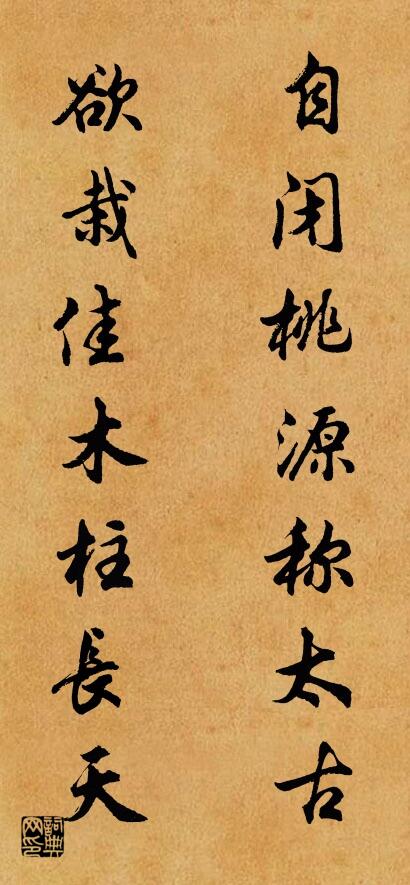 自闭桃源称太古
欲栽佳木柱長天